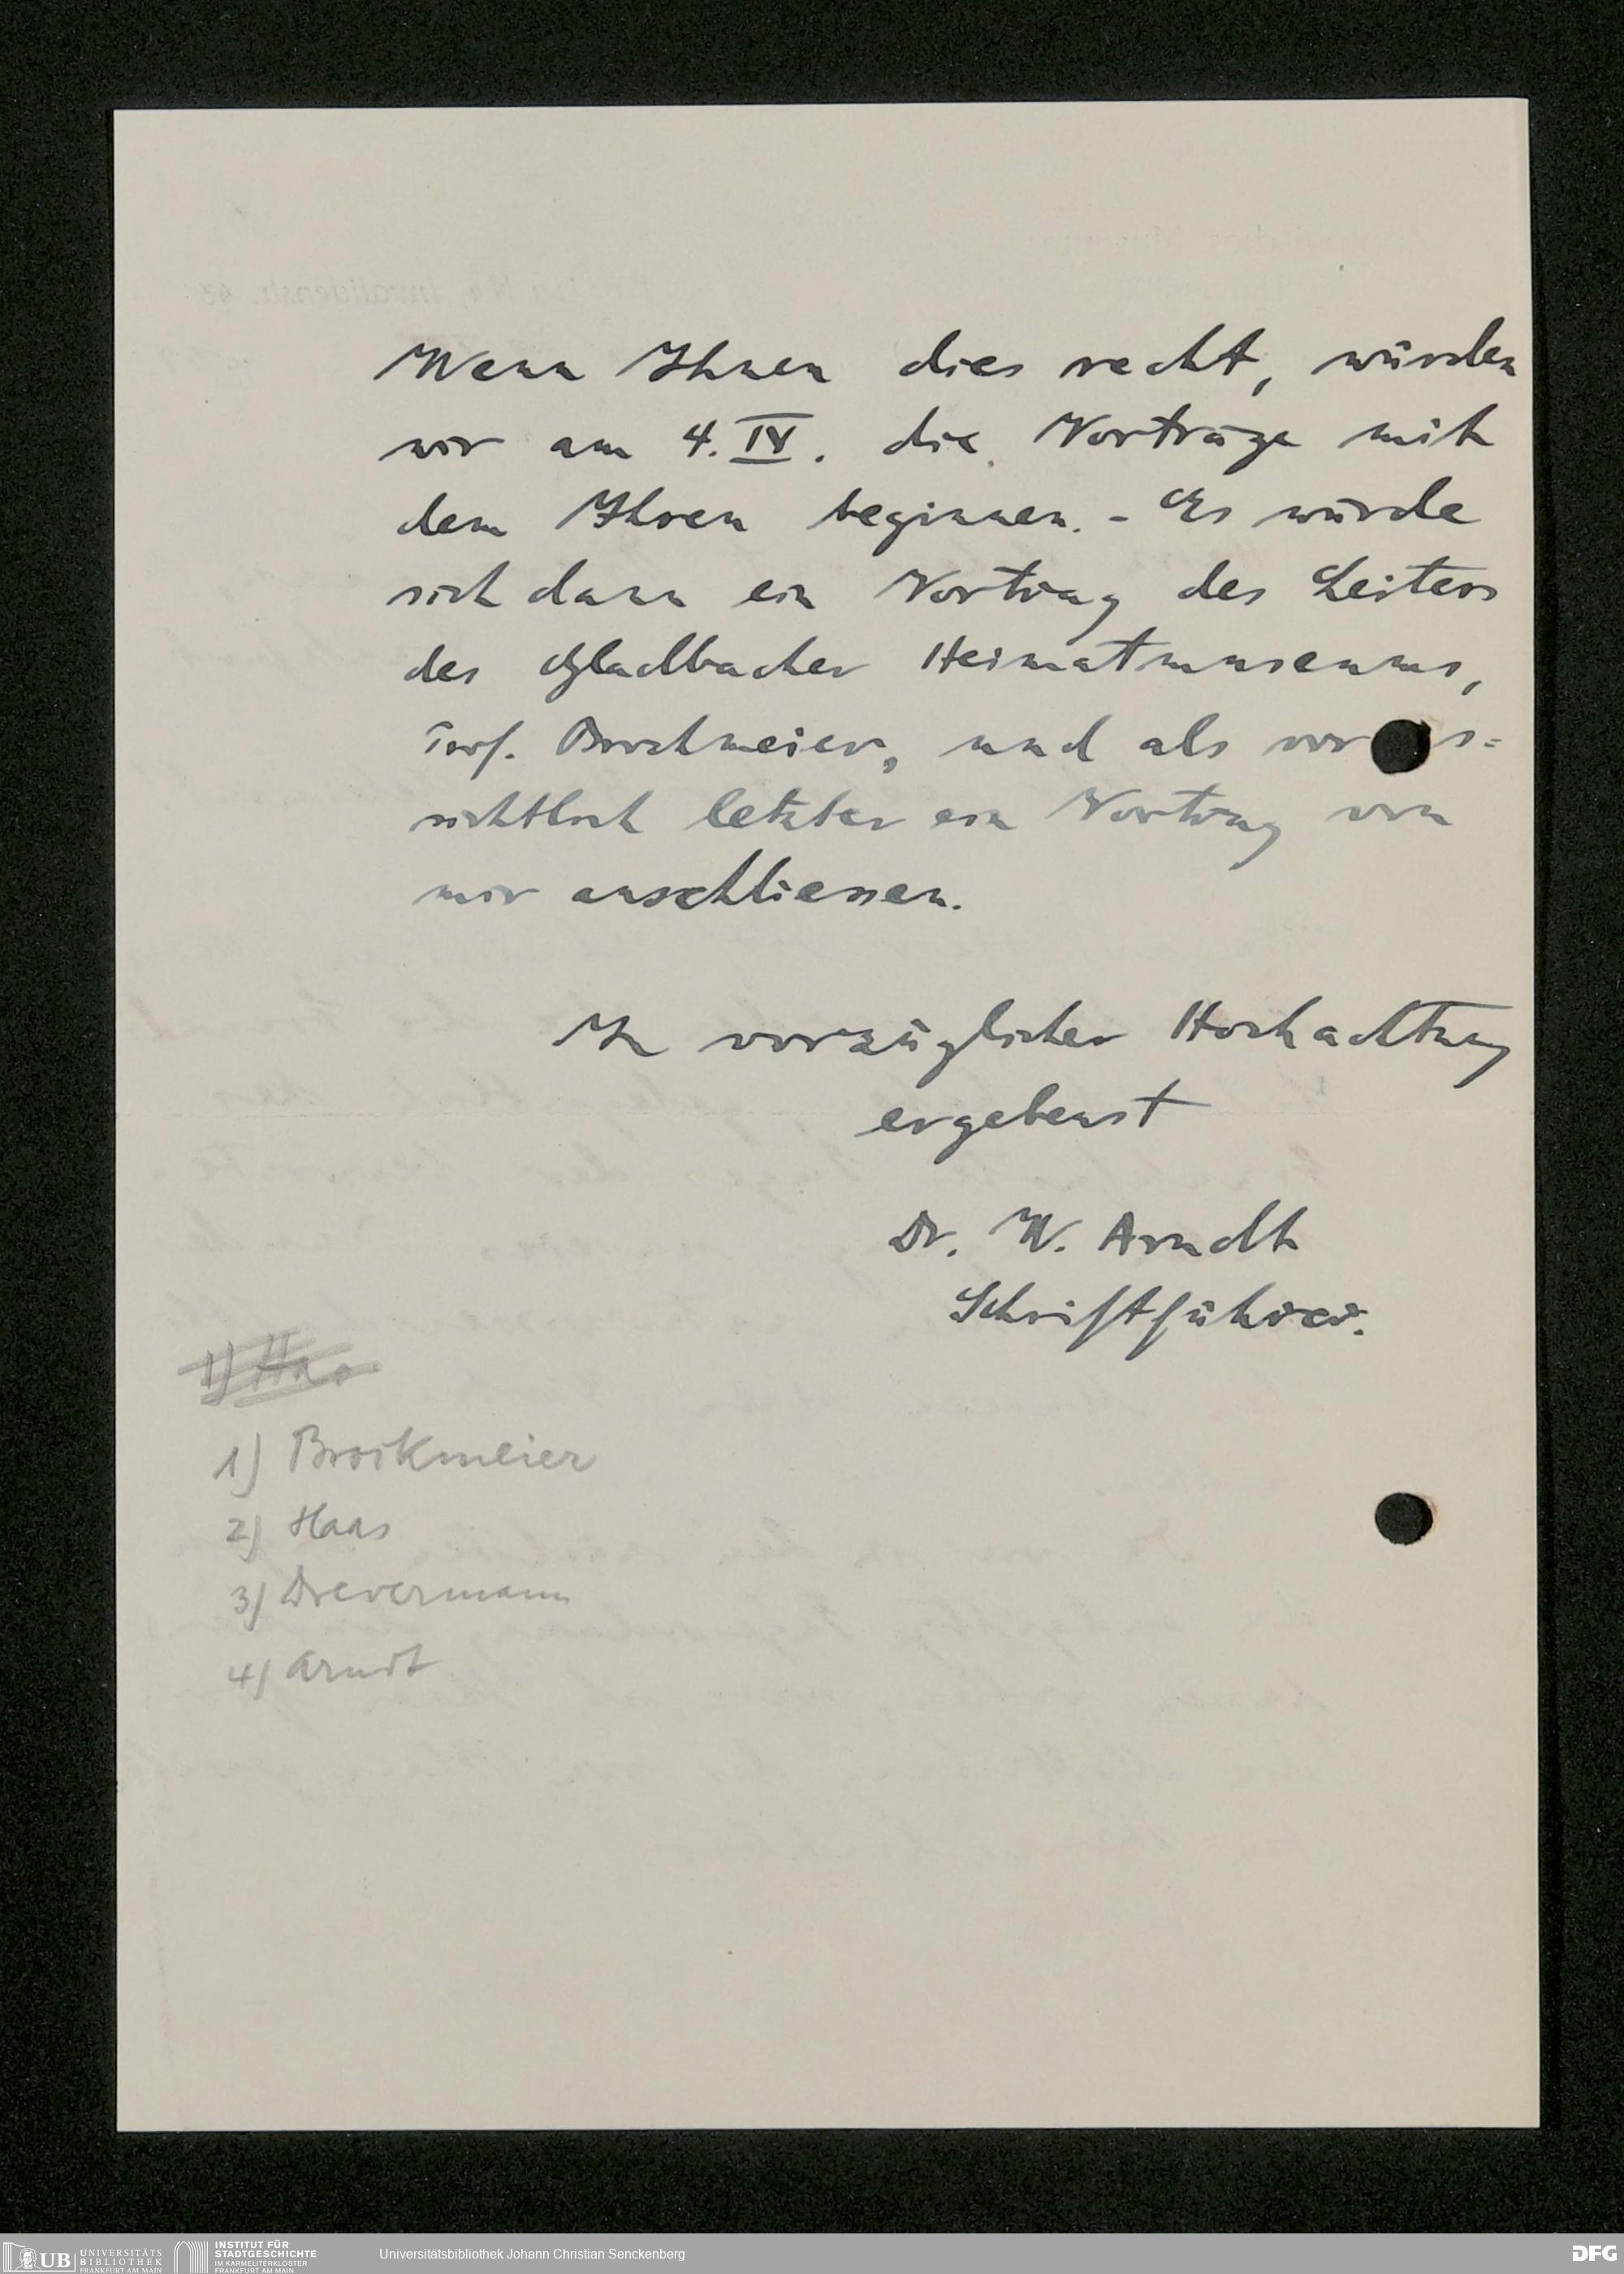 Wenn Ihnen dies recht, würden
wir am 4. IX. die Vorträge mit
dem Ihren beginnen. - Es würde
sich dann ein Vortrag des Leiters
des Gladbacher Heimatmuseums,
Prof. Brockmeier, und als vor s=
sichtlich letzter ein Vortrag von
mir anschliessen.
In vorzüglicher Hochachtung
ergebenst
Dr. W. Arndt
Schriftführer.
1) Haas
1) Brockmeier
2) Haas
3) Drevermann
4) Arndt
UB UNIVERSITÄTS BIBLIOTHEK FRANKFURT AM MAIN
INSTITUT FÜR STADTGESCHICHTE IM KARMELITERKLOSTER FRANKFURT AM MAIN
Universitätsbibliothek Johann Christian Senckenberg
DFG